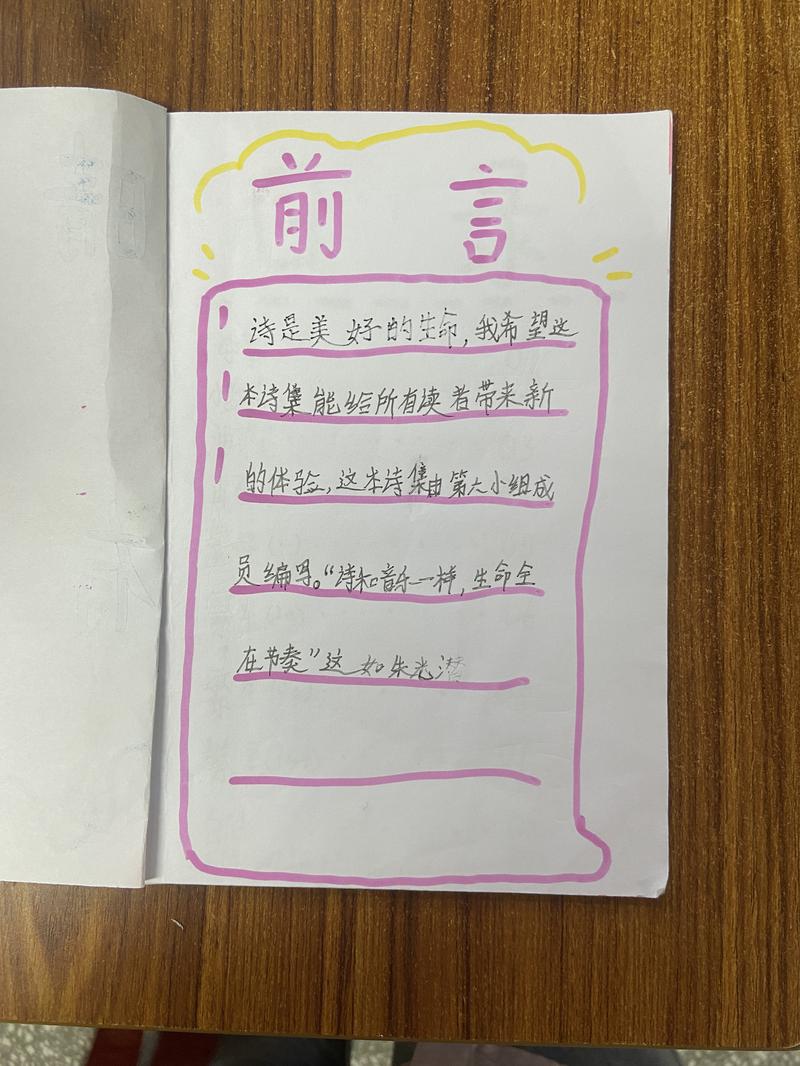 前言
诗是美好的生命,我希望这
本诗集能给所有读者带来新
的体验,这本诗集由第六小组成
员编写。“诗和音乐一样,生命全
在节奏”这如朱光潜